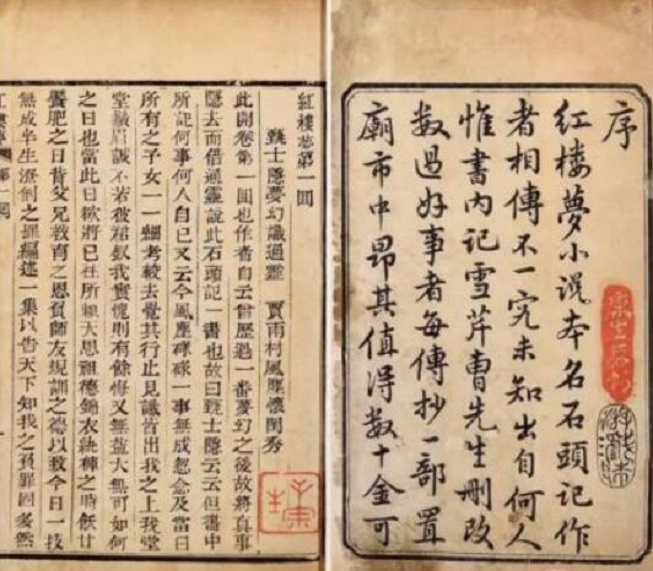 序
紅楼夢小説本名石頭記作
者相傳不一究未知出自何人
惟書内記雪芹曹先生刪改
数過好事者每傳抄一部置
廟市中昂其值得数十金可
紅樓夢第一回
甄士隱夢幻識通靈 賈雨村風塵懷閨秀
此開卷第一回也作者自云曾歷過一番夢幻之後故將真事
隱去而借通靈說此石頭記一書也故曰甄士隱云云但書中
所記何事何人自己又云今風塵碌碌一事無成忽念及當日
所有之子女一一細考較去覺其行止見識皆出我之上我堂
堂鬚眉誠不若彼裙釵我實愧則有餘悔又無益大無可如何
之日也當此日欲將已往所賴天恩祖德錦衣紈袴之時飫甘
饜肥之日背父兄教育之恩負師友規訓之德以致今日一技
無成半生潦倒之罪編述一集以告天下知我之負罪固多然